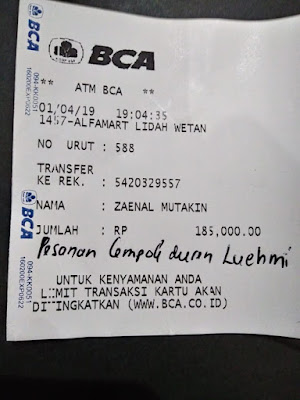 BCA
BCA
** ATM BCA **
01/04/19 19:04:35
1457-ALFAMART LIDAH WETAN
NO URUT : 588
TRANSFER
KE REK. : 5420329557
NAMA : ZAENAL MUTAKIN
JUMLAH : RP 185,000.00
Pesanan Lempok durian
UNTUK KENYAMANAN ANDA
LIMIT TRANSAKSI KARTU AKAN
DITINGKATKAN (WWW.BCA.CO.ID)
BCA
094-KK0051
160200EXP0622